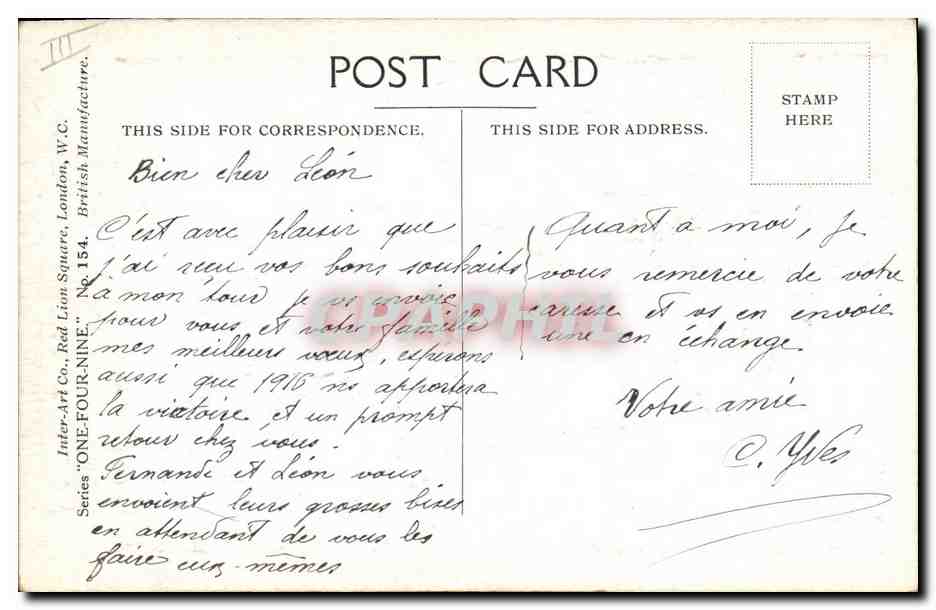 III
POST CARD
THIS SIDE FOR CORRESPONDENCE.
THIS SIDE FOR ADDRESS.
STAMP
HERE
Inter-Art Co., Red Lion Square, London, W.C.
Series "ONE-FOUR-NINE." No. 154. British Manufacture.
Bien cher Léon
C'est avec plaisir que
j'ai reçu vos bons souhaits
à mon tour je vs envoie
pour vous et votre famille
mes meilleurs voeux, espérons
aussi que 1916 ns apportera
la victoire et un prompt
retour chez vous.
Fernande et Léon vous
envoient leurs grosses bises
en attendant de vous les
faire eux-mêmes
Quant à moi, je
vous remercie de votre
caresse et vs en envoie
une en échange
Votre amie
C. Yves
CPAPHIL